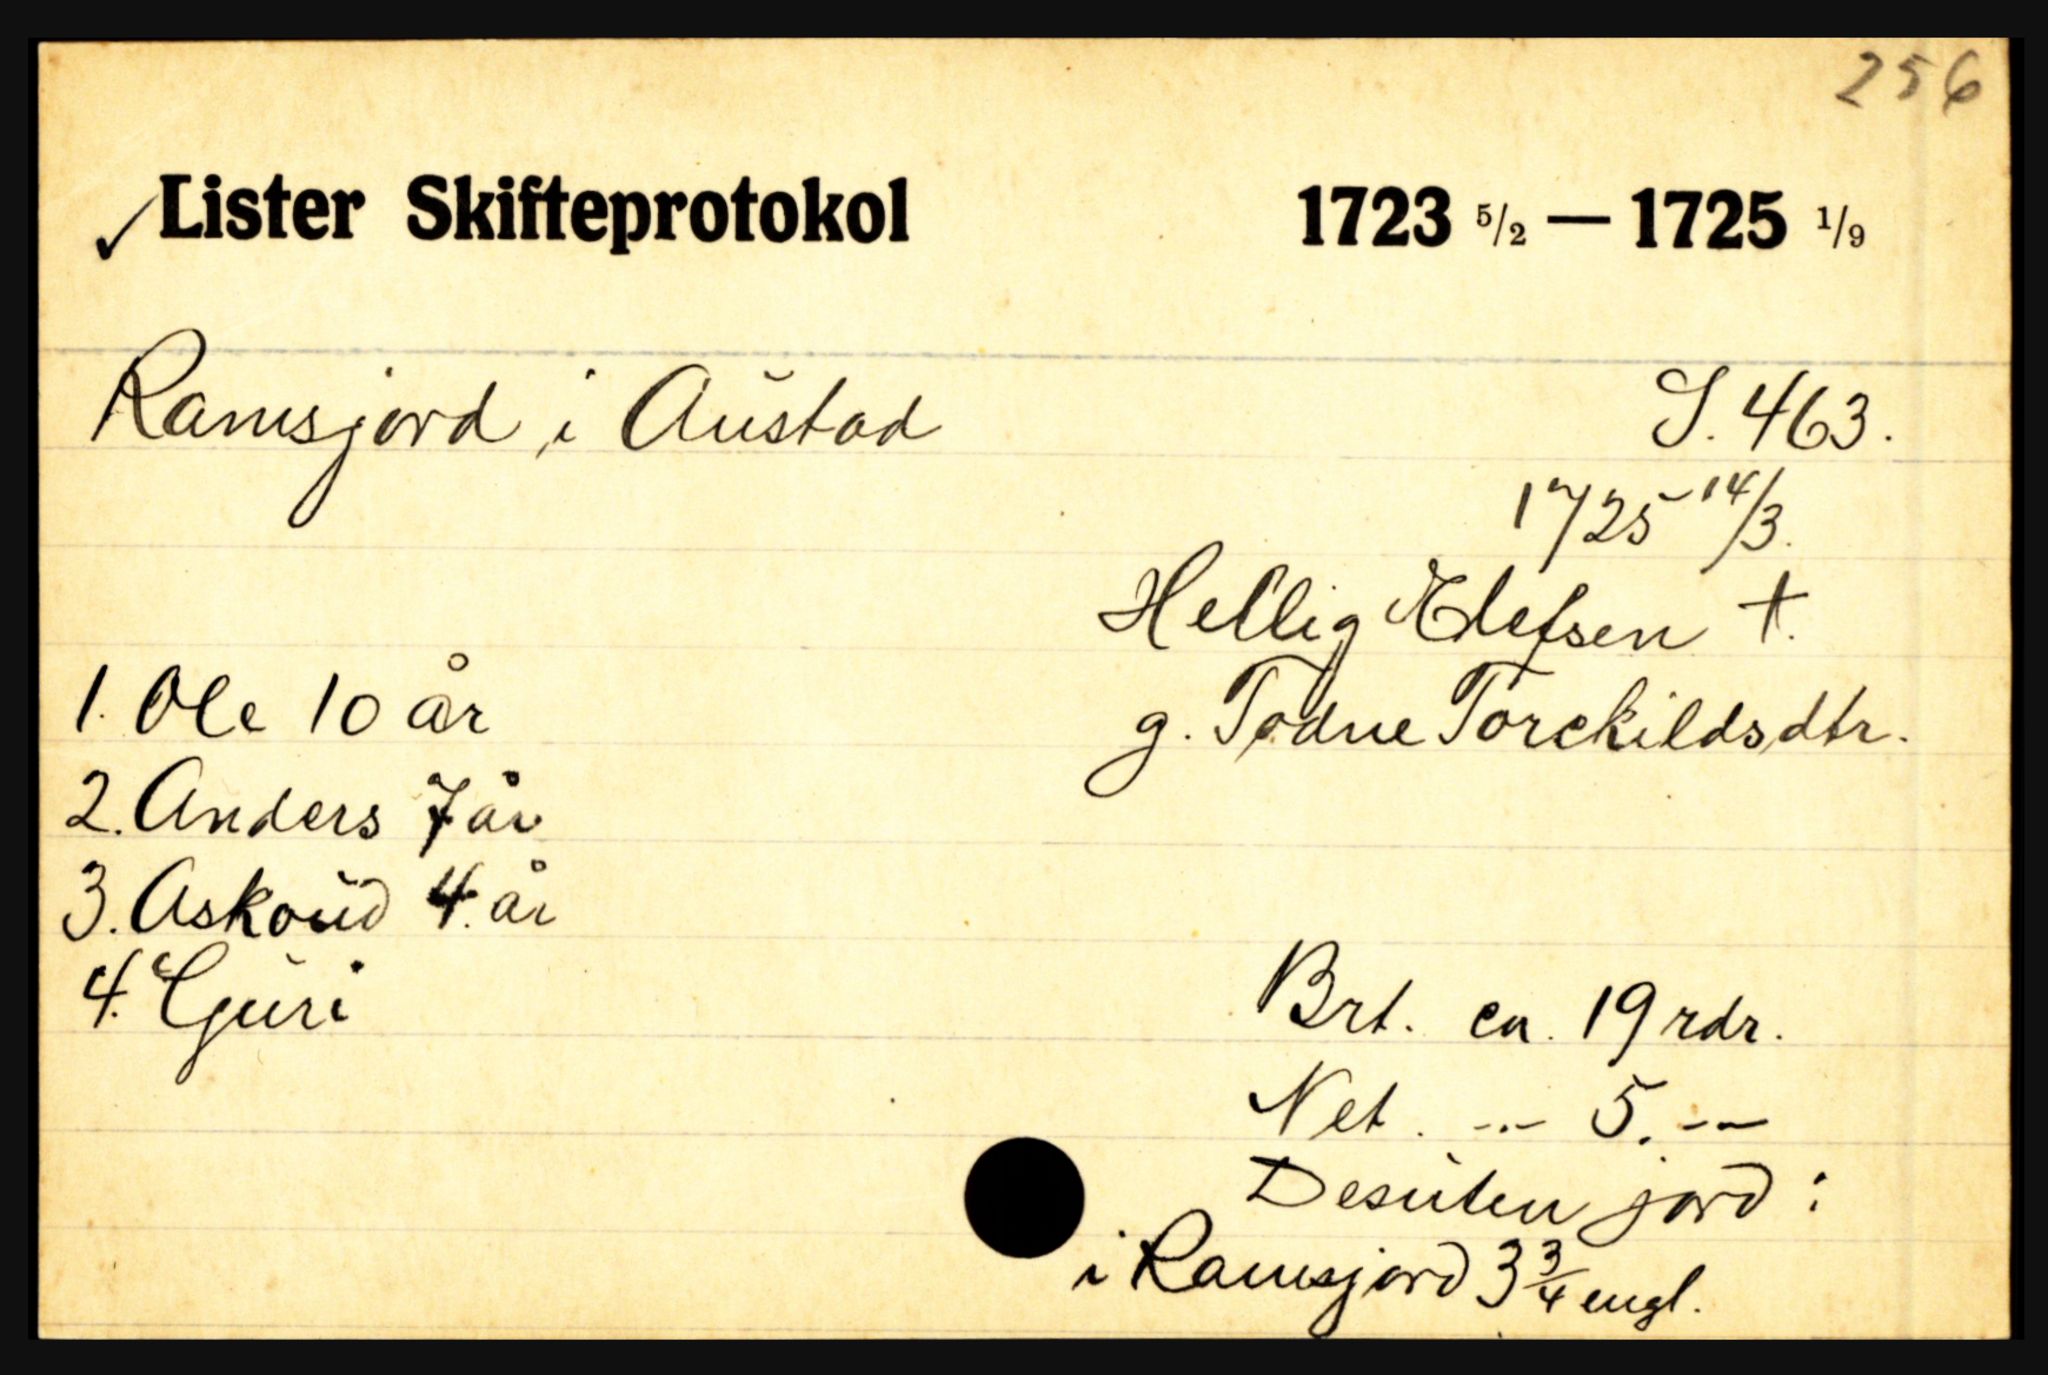 256
✓ Lister Skifteprotokol 1723 5/2 — 1725 1/9
Ramsjord i Austad S. 463.
1725 14/3.
Hellig Elefsen †.
1. Ole 10 år
g. Todne Torckildsdtr.
2. Anders 7 år
3. Askoud 4. år
4. Guri
Brt. ca. 19 rdr.
Net. -„- 5. -„-
Desuten jord:
i Ramsjord 3 3/4 engl.